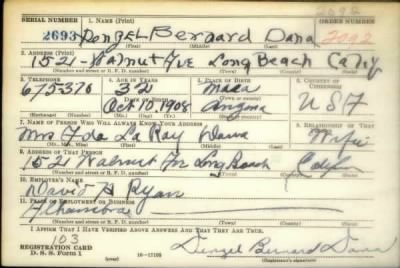 2692
SERIAL NUMBER
1. NAME (Print)
2693
Denzel Bernard Dana
2092
(First) (Middle) (Last)
2. ADDRESS (Print)
1521 - Walnut Ave Long Beach Calif
(Number and street or R. F. D. number) (Town) (County) (State)
3. TELEPHONE
4. AGE IN YEARS
5. PLACE OF BIRTH
6. COUNTRY OF CITIZENSHIP
675376
32
Mesa
DATE OF BIRTH
(Town or county)
Oct. 10, 1908
Arizona
USA
(Exchange) (Number)
(Mo.) (Day) (Yr.)
(State or country)
7. NAME OF PERSON WHO WILL ALWAYS KNOW YOUR ADDRESS
8. RELATIONSHIP OF THAT PERSON
Mrs Ida La Ray Dana
Wife
(Mr., Mrs., Miss) (First) (Middle) (Last)
9. ADDRESS OF THAT PERSON
1521 Walnut Ave Long Beach Calif
(Number and street or R. F. D. number) (Town) (County) (State)
10. EMPLOYER'S NAME
David H Ryan
11. PLACE OF EMPLOYMENT OR BUSINESS
Alhambra
(Number and street or R. F. D. number) (Town) (County) (State)
I AFFIRM THAT I HAVE VERIFIED ABOVE ANSWERS AND THAT THEY ARE TRUE.
103
REGISTRATION CARD
D. S. S. Form 1
16—17105
Denzel Bernard Dana
(Registrant's signature)